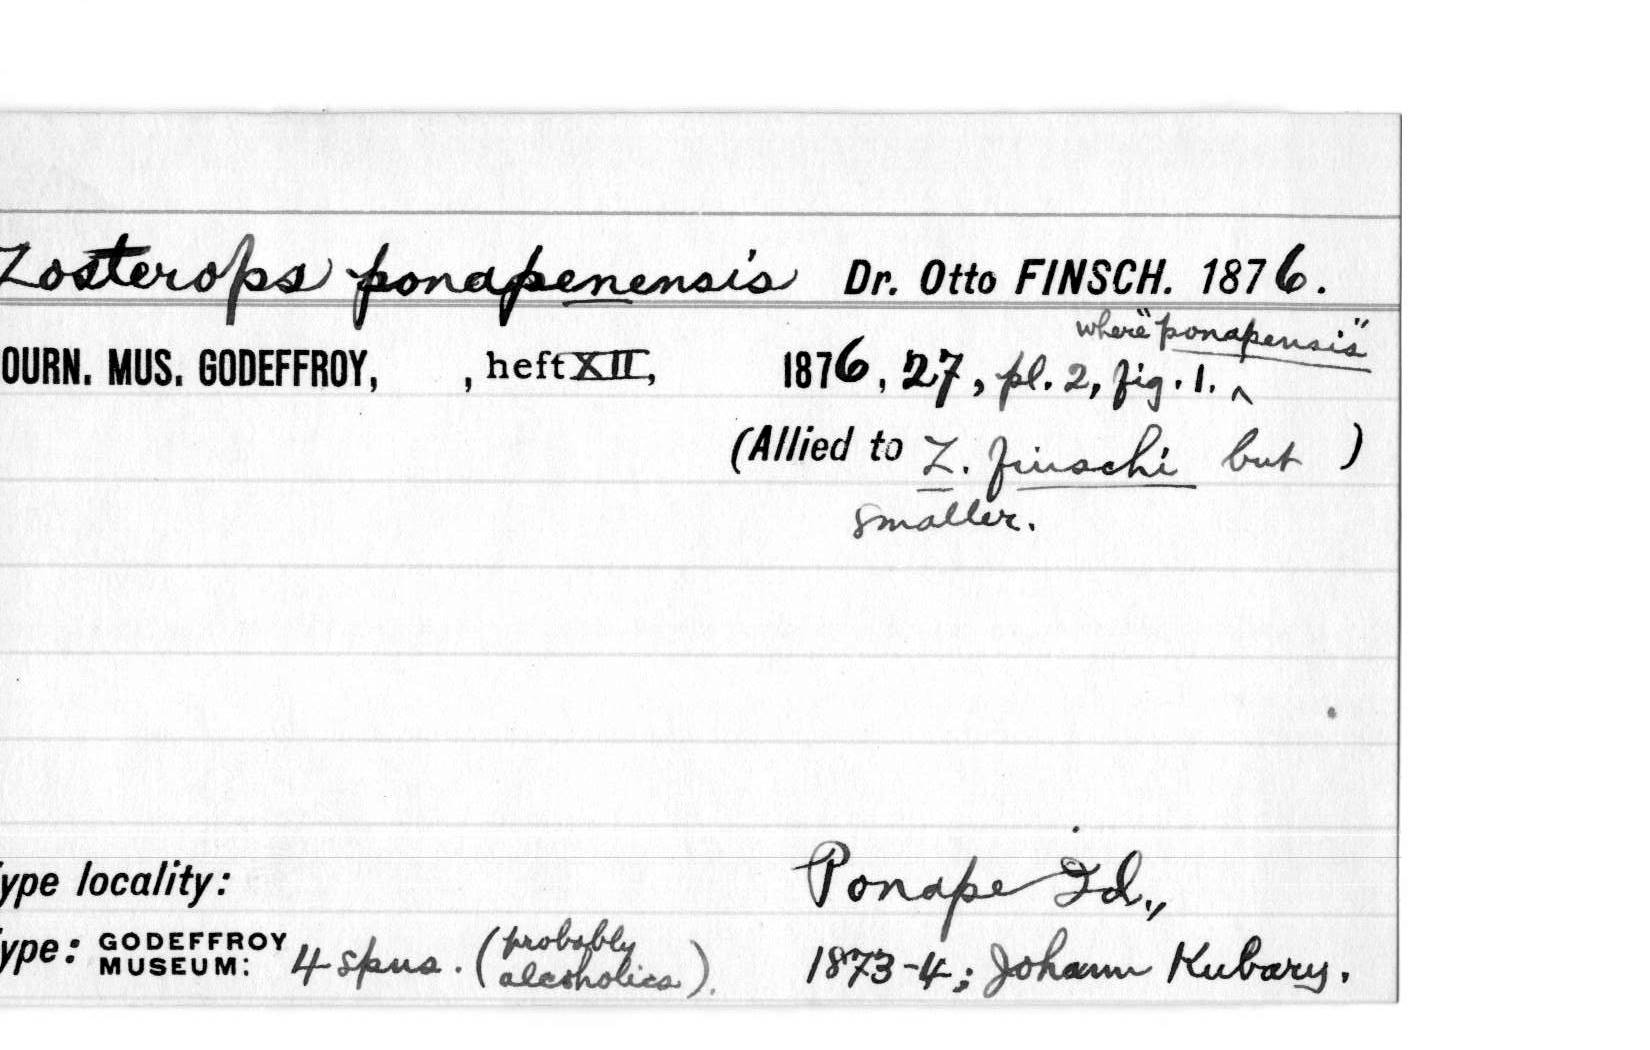 Zosterops ponapenensis Dr. Otto FINSCH. 1876.
where "ponapensis"
OURN. MUS. GODEFFROY, , heft XII, 1876, 27, pl. 2, fig. 1. ^
(Allied to Z. finschi but )
smaller.
ype locality: Ponape Id.,
ype: GODEFFROY MUSEUM: 4 spns. (probably alcoholics). 1873-4; Johann Kubary.